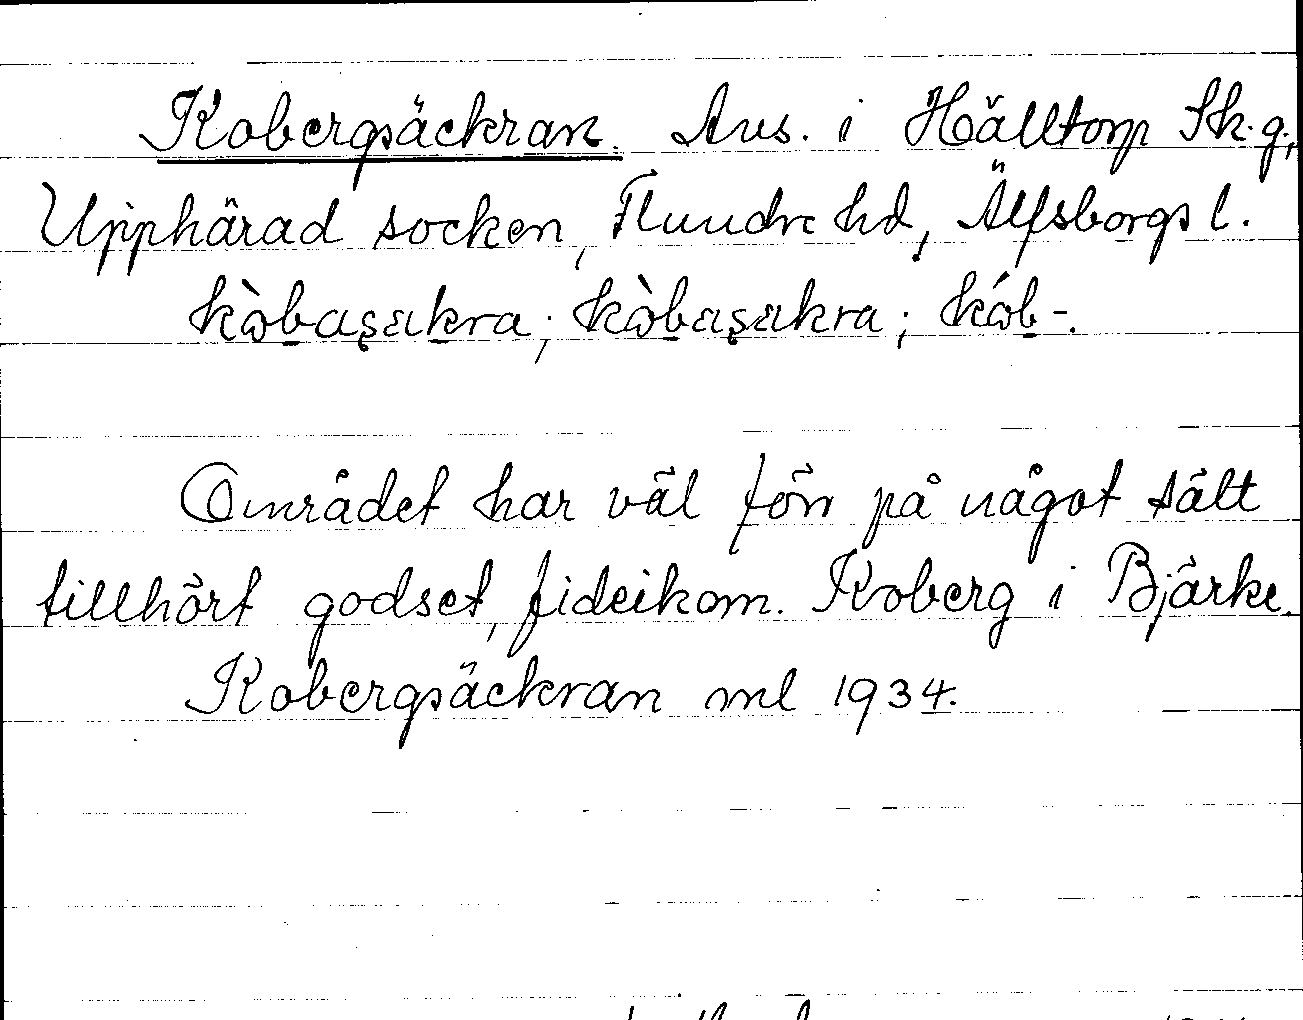 Kobergsäckran. Avs. i Hälltorp Sk.g.,
Upphärad socken, Flundre hd, Älfsborgs l.
kòbasakra; kòbasakra; kób-.
Området har väl förr på något sätt
tillhört godset, fideikom. Koberg i Bjärke.
Kobergsäckran ml 1934.